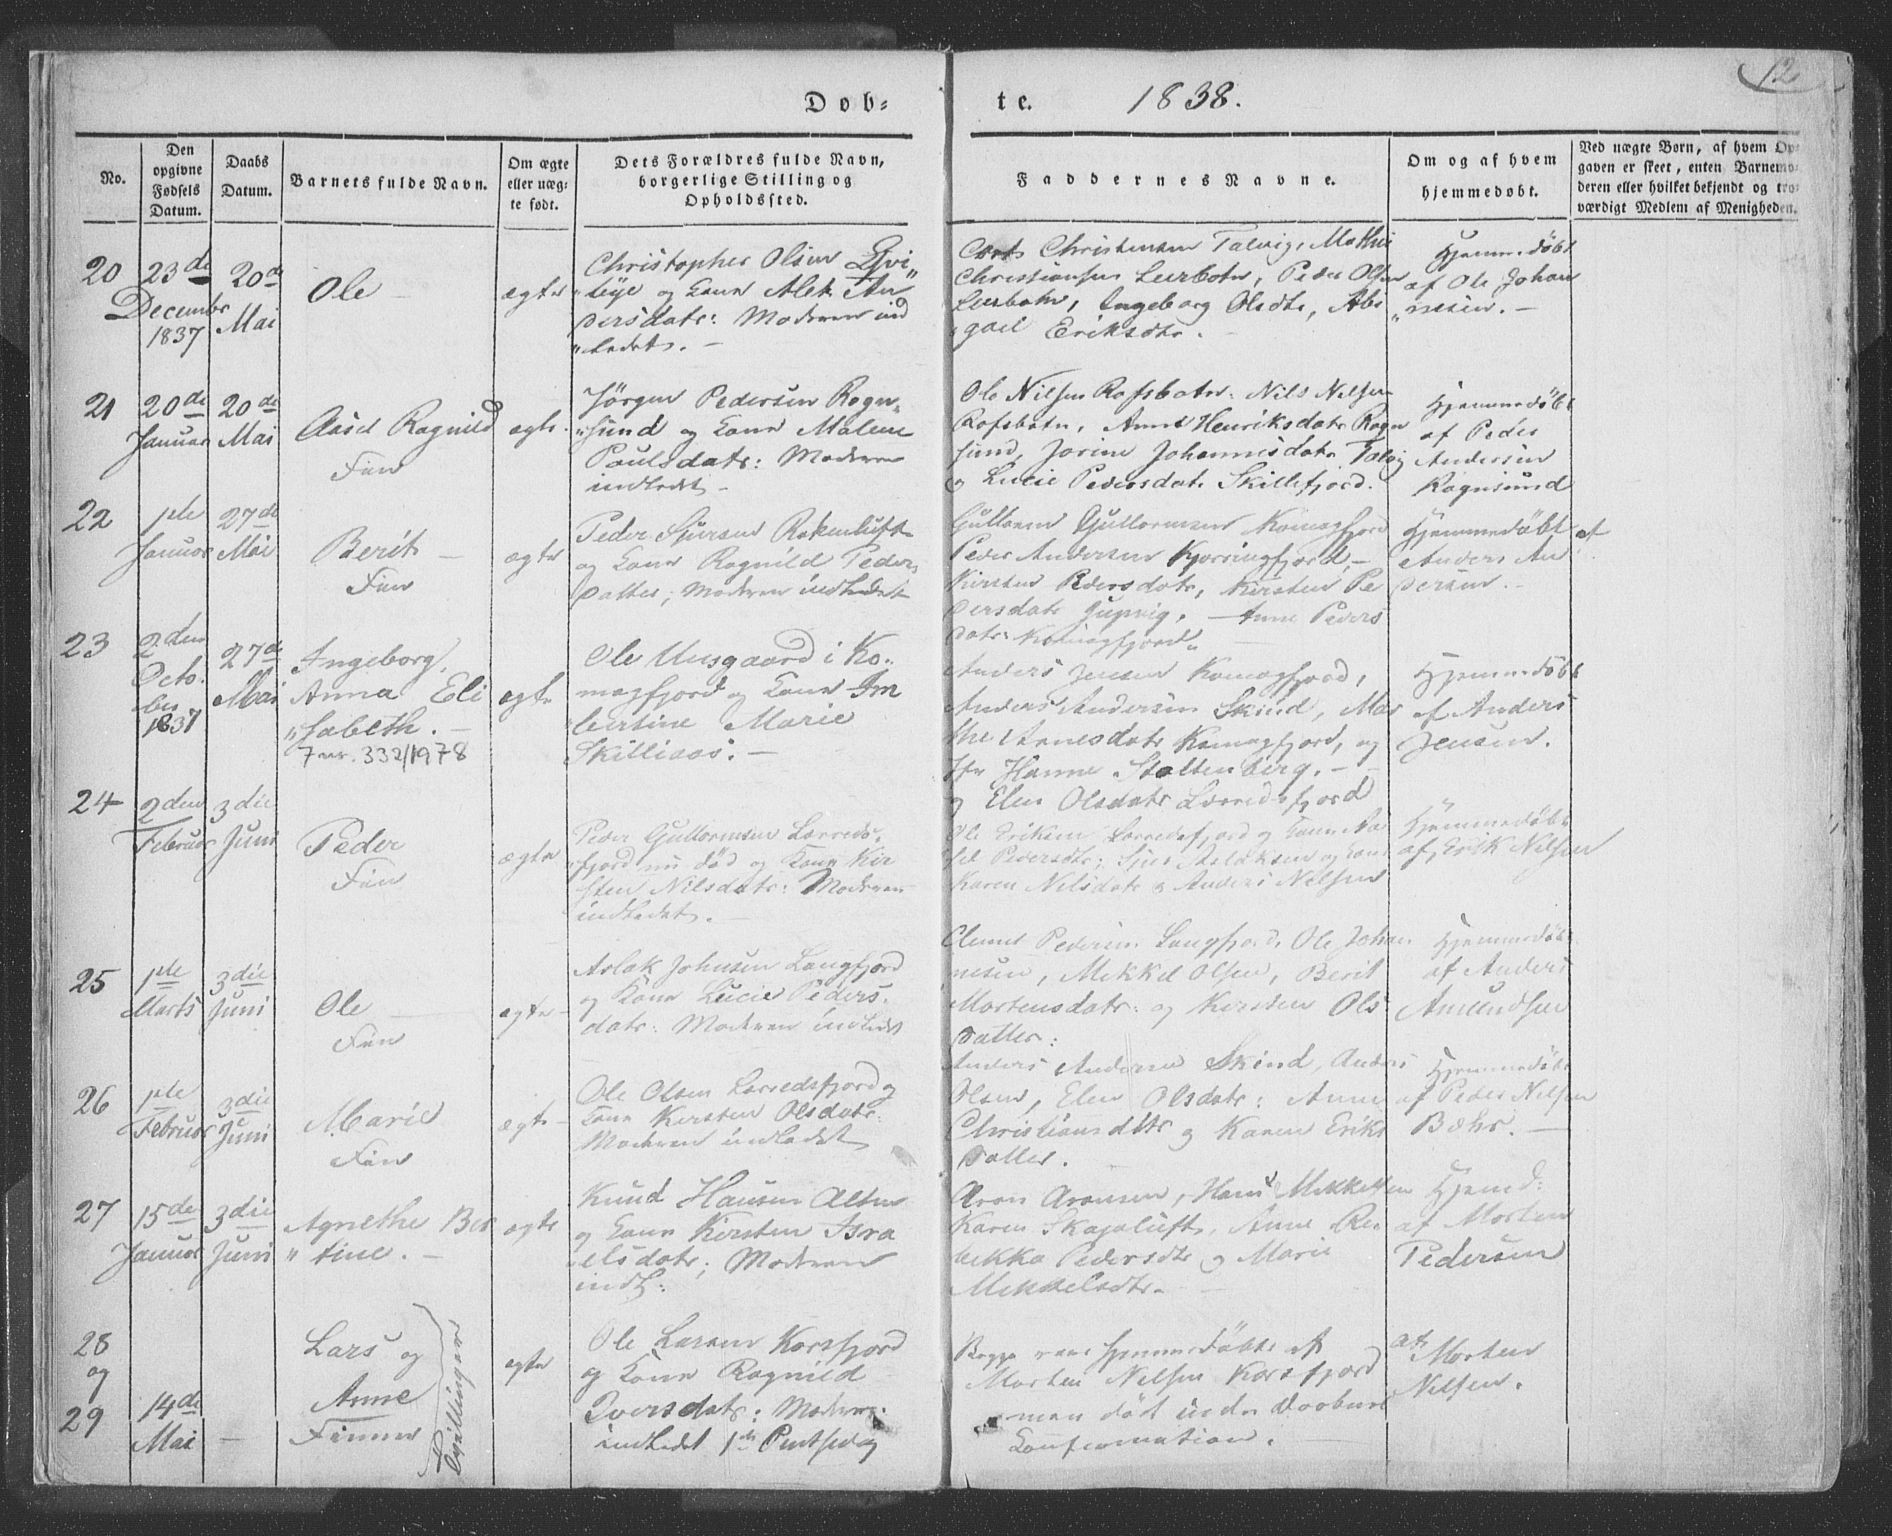 12
Dob-
te. 1838.
No.
Den opgivne Fødsels Datum.
Daabs Datum.
Barnets fulde Navn.
Om ægte eller uægte født.
Dets Forældres fulde Navn, borgerlige Stilling og Opholdssted.
Faddernes Navne.
Om og af hvem hjemmedøbt.
Ved uægte Børn, af hvem Opgaven er skeet, enten Barnemoderen eller hvilket bekjendt og troværdigt Medlem af Menigheden.
20
23de
Decembr
1837
20de
Mai
Ole
ægte
Christopher Olsen
og Kone
dersdatr: Moderen ind
ledet.
Christensen Talvig,
Christiansen Leerbotn, Peder Olsen
Leerbotn, Ingeborg Olsdtr, Abi
gael Eriksdtr.
Hjemmedøbt
af Ole Johan
nesen.
21
20de
Januar
20de
Mai
Aasel Ragnild
Fin
ægte
Jørgen Pedersen Rogn
sund og Kone Malene
Paulsdatr: Moderen
indledet
Ole Nilsen Rafsbotn. Nils Nilsen
Rafsbotn, Anne Henriksdatr Rogn
sund, Jorine Johannisdatr Talvig
og Lucie Pedersdatr Skillefjord.
Hjemmedøbt
af Peder
Andersen
Rognsund
22
1ste
Januar
27de
Mai
Berit
Fin
ægte
Peder Sjursen
og Kone Ragnild Peders
datter; Moderen indledet
Guttorm Guttormsen Komagfjord
Peder Andersen
Kirsten Pedersdatr, Kirsten Pe
dersdatr Anne Peders
datr Komagfjord
Hjemmedøbt af
Anders An
dersen.
23
2den
Octo
ber
1837
27de
Mai
Ingeborg
Anna Eli
sabeth.
7 nr. 332/1978
ægte
Ole Uusgaard i Ko
magfjord og Kone Im
bertine Marie
Skillivas.
Anders Jensen Komagfjord,
Anders Andersen Skind, Mar
the Arnesdatr Komagfjord, og
Jfr Hanne Stoltenberg.
og Elen Olsdatr Lerredsfjord
Hjemmedøbt
af Anders
Jensen.
24
2den
Februar
3die
Juni
Peder
Fin
ægte
Peder Guttormsen Lerreds
fjord nu død og Kone Kir
sten Nilsdatr: Moderen
indledet.
Ole Eriksen Lerredsfjord og Kone Aa
sel Pedersdtr: Sjur Aslaksen og Kone
Karen Nilsdatr & Anders Nilsen
Hjemmedøbt
af Erik Nilsen
25
1ste
Marts
3die
Juni
Ole
Fin
ægte
Aslak Johnsen Langfjord
og Kone Lucie Peders
datr: Moderen indledet
Clemet Pedersen Langfjord, Ole Johan
nesen, Mikkel Olsen, Berit
Mortensdatr: og Kirsten Ols
datter:
Hjemmedøbt
af Anders
Amundsen
26
1ste
Februar
3die
Juni
Marie
Fin
ægte
Ole Olsen Lerredsfjord og
Kone Kirsten Olsdatr.
Moderen indledet
Anders Andersen Skind, Anders
Olsen, Elen Olsdatr: Anne
Christiansdtr og Karen Eriks
datter.
Hjemmedøbt
af Peder Nilsen
Bæhr.
27
15de
Januar
3die
Juni
Agnethe Ber
tine.
ægte
Knud Hansen Alten
og Kone Kirsten Isra
elsdatr; Moderen
indl:
Aron Aronsen, Hans Mikkelsen
Karen Skogaluft, Anne Re
bekka Pedersdtr og Marie
Mikkelsdtr.
Hjemd:
af Morten
Pedersen
28
og
29
14de
Mai
Lars og
Anne
Finner
Tvillinger
ægte
Ole Larsen Korsfjord
og Kone Ragnild
Iversdatr: Moderen
indledet 1ste Pintsedag
Begge vare hjemmedøbte af
Morten Nilsen Korsfjord
men døde inden Daabens
Confirmation.
af Morten
Nilsen.